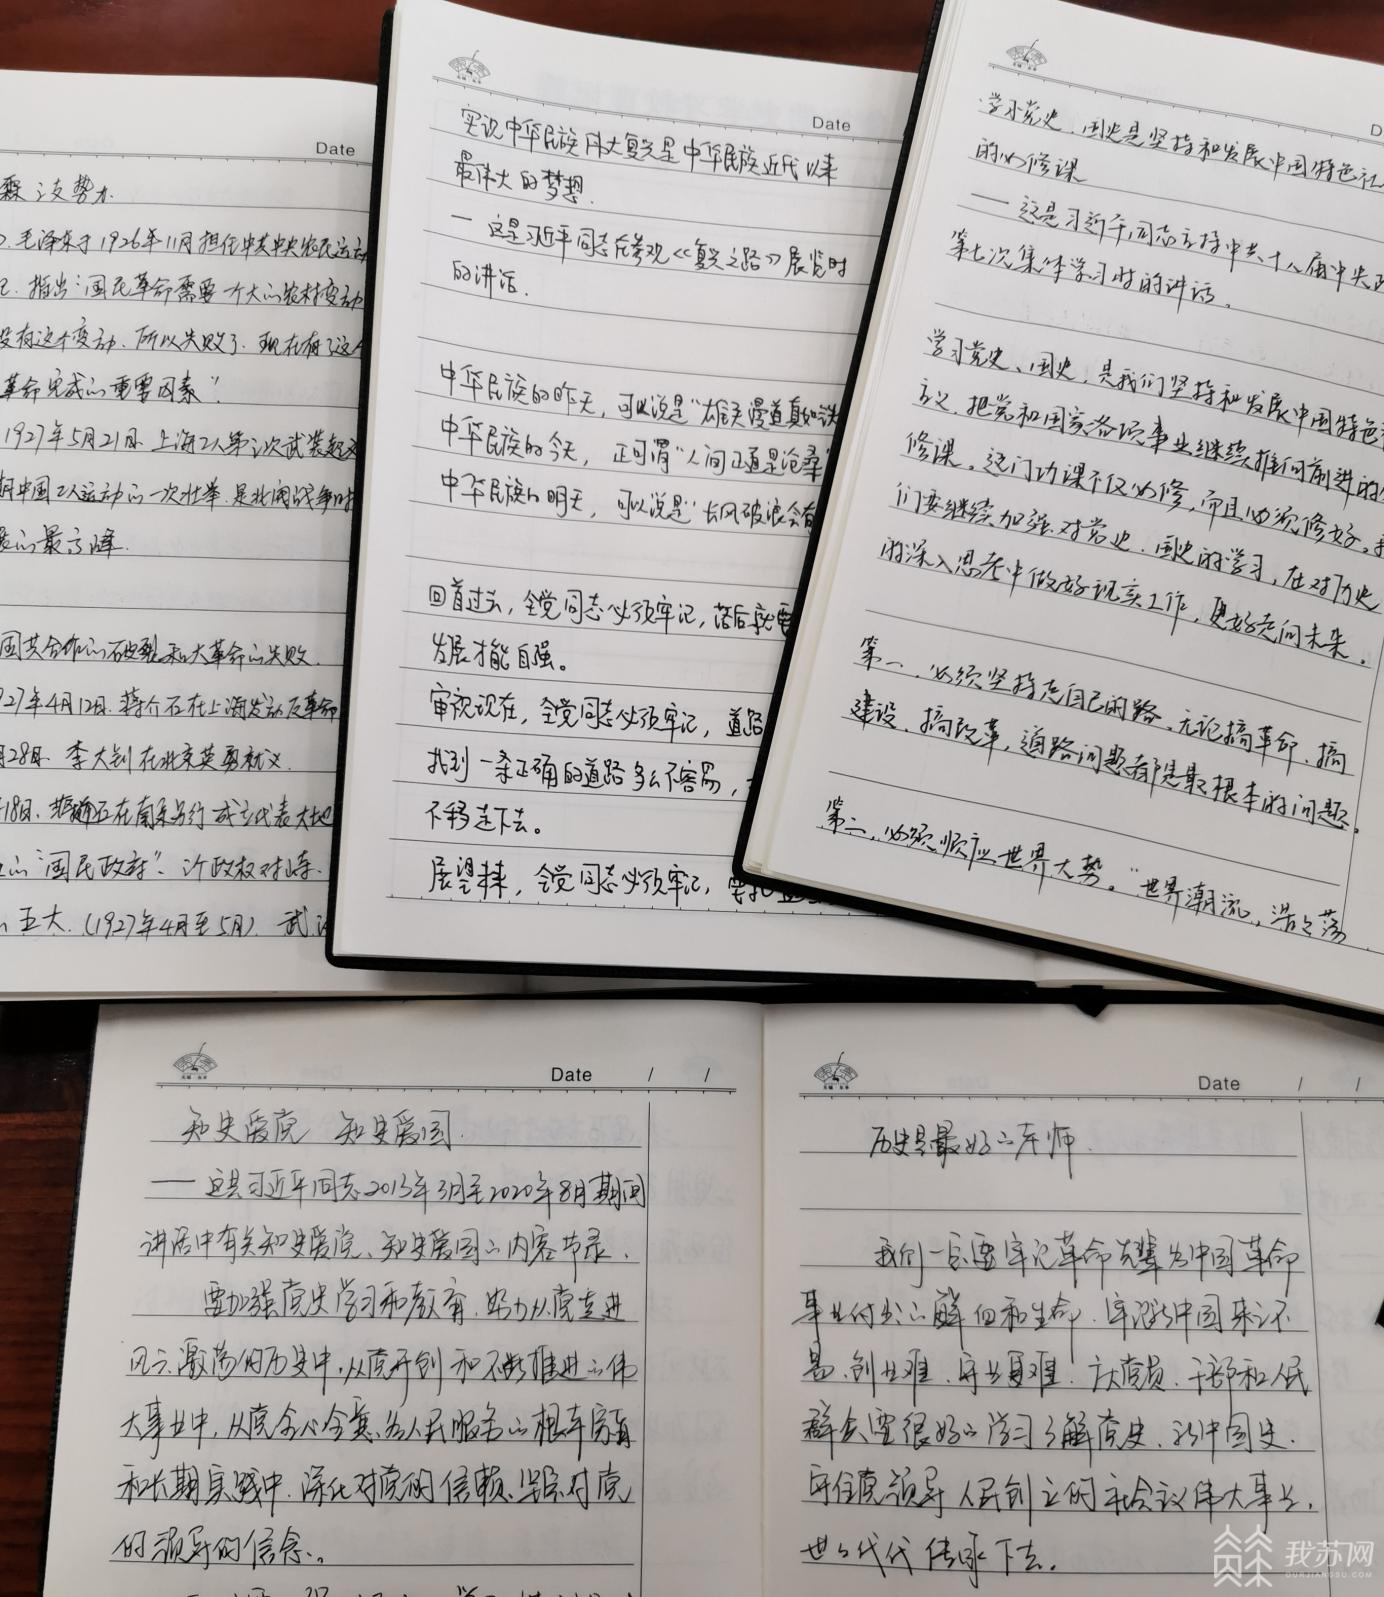 Date
霖该势力
毛泽东于1926年11月担任中共中央农民运动
指出:"国民革命需要一个大的农村变动
没有这个变动.所以失败了.现在有了这个
革命完成的重要因素"
1927年5月21日.上海工人第三次武装起义
期中国工人运动的一次壮举.是北伐战争时
展的最高峰.
国共合作的破裂和大革命的失败.
927年4月12日.蒋介石在上海发动反革命
月28日.李大钊在北京英勇就义.
18日.蒋介石在南京另行成立代表大地
的"国民政府".
五大.(1927年4月至5月).武汉
Date
实现中华民族伟大复兴是中华民族近代以来
最伟大的梦想.
一 这是习近平同志在参观《复兴之路》展览时
的讲话.
中华民族的昨天,可以说是"雄关漫道真如铁
中华民族的今天,正可谓"人间正道是沧桑"
中华民族的明天,可以说是"长风破浪会有
回首过去,全党同志必须牢记,落后就要
发展才能自强。
审视现在,全党同志必须牢记,道路
找到一条正确的道路多么不容易,
不移走下去。
展望未来,全党同志必须牢记,要把
D
学习党史、国史是坚持和发展中国特色社
的必修课
——这是习近平同志主持中共十八届中央政
第七次集体学习时的讲话。
学习党史、国史,是我们坚持和发展中国特色社
主义、把党和国家各项事业继续推向前进的必
修课。这门功课不仅必修,而且必须修好。我
们要继续加强对党史、国史的学习,在对历史
的深入思考中做好现实工作,更好走向未来。
第一,必须坚持走自己的路。无论搞革命、搞
建设、搞改革,道路问题都是最根本的问题。
第二,必须顺应世界大势。"世界潮流,浩浩荡
Date / /
知史爱党 知史爱国.
——这是习近平同志2013年3月至2020年8月期间
讲话中有关知史爱党、知史爱国的内容节录.
要加强党史学习和教育.努力从党走进
风云激荡的历史中,从党开创和不断推进的伟
大事业中,从党全心全意为人民服务的根本宗旨
和长期实践中.深化对党的信赖、坚定对党
的领导的信念。
Date / /
历史是最好的老师.
我们一定要牢记革命先辈为中国革命
事业付出的鲜血和生命.牢记新中国来之不
易.创业难.守业更难.广大党员、干部和人民
群众要很好的学习了解党史、新中国史.
守住党领导人民创立的社会主义伟大事业.
世世代代传承下去。
我苏网
OURJIANGSU.COM